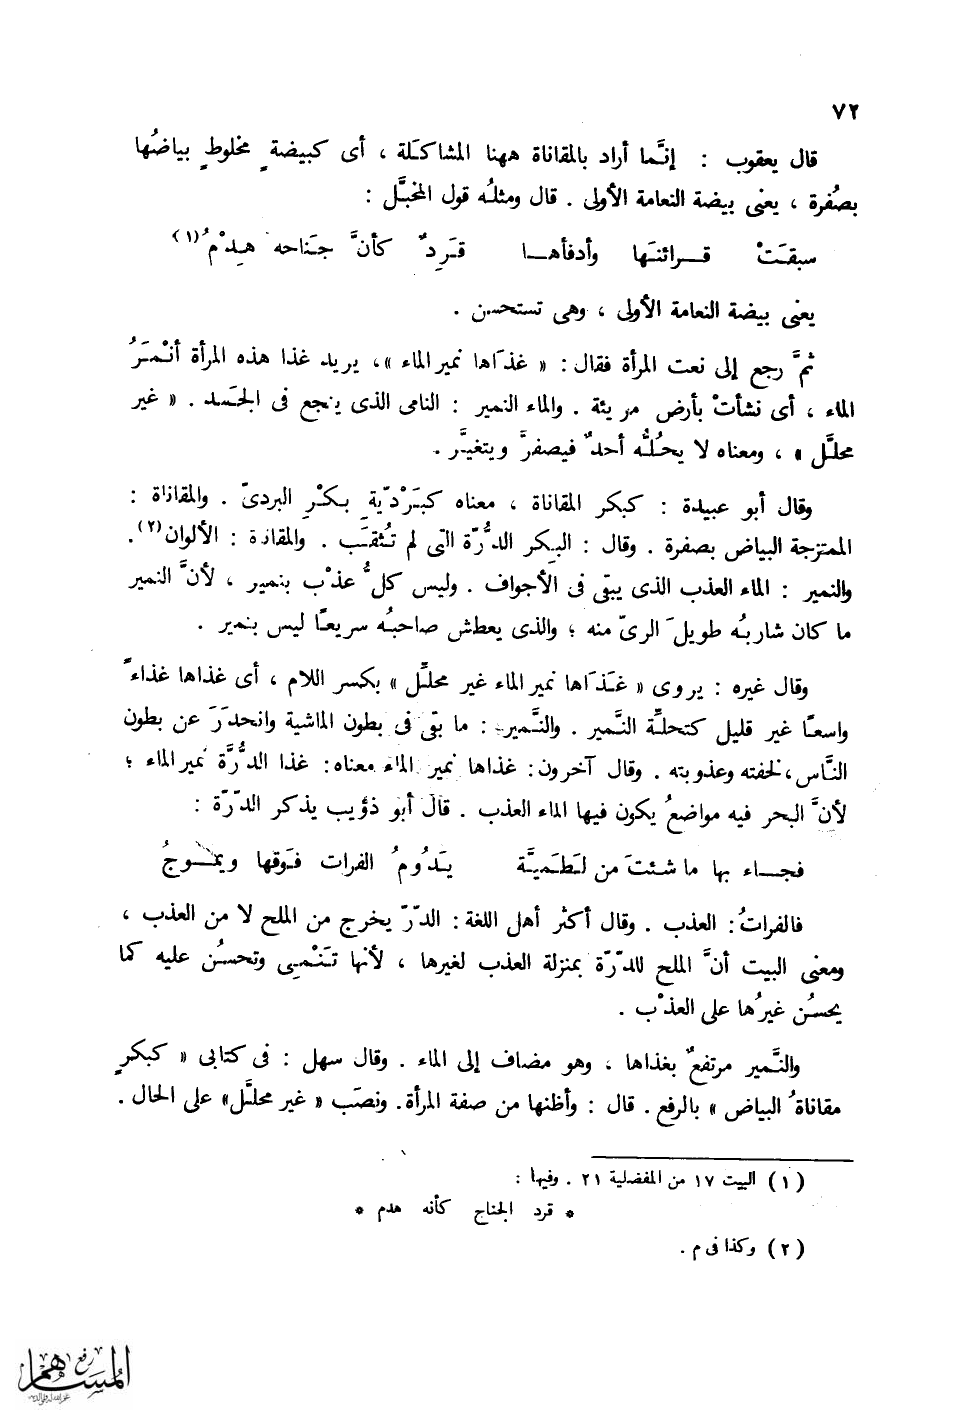 ٧٢
قال يعقوب : إنَّما أراد بالمقاناة ههنا المشاكَلة ، أى كبيضةٍ مخلوطٍ بياضُها
بصُفرة ، يعنى بيضة النعامة الأولى . قال ومثلُه قول المخبَّل :
سبقَتْ قــرائنَها وأدفأهــا قَرِدٌ كأنَّ جَناحه هِدْمُ(١)
يعنى بيضة النعامة الأولى ، وهى تستحسن .
ثمَّ رجع إلى نعت المرأة فقال : « غذَاها نمير الماء »، يريد غذا هذه المرأة أنْمَرُ
الماء ، أى نشأتْ بأرض مريئة . والماء النمير : النامى الذى ينجع فى الجَسد . « غير
محلَّل » ، ومعناه لا يحُلُّه أحدٌ فيصفرَّ ويتغيَّر .
وقال أبو عبيدة : كبكر المقاناة ، معناه كبَرْدِيّةٍ بكْرِ البردىّ . والمقاناة :
الممتزجة البياض بصفرة . وقال : البِكر الدُّرّة التى لم تُثقَب . والمقاناة : الألوان(٢).
والنمير : الماء العذب الذى يبقى فى الأجواف . وليس كلُّ عذْب بنمير ، لأنَّ النمير
ما كان شاربُه طويلَ الرىّ منه ؛ والذى يعطش صاحبُه سريعًا ليس بنمير .
وقال غيره : يروى « غَذَاها نمير الماء غير محلِّل » بكسر اللام ، أى غذاها غذاءً
واسعًا غير قليل كتحلِّة النَّمير . والنَّمير : ما بقى فى بطون الماشية وانحدَرَ عن بطون
النَّاس، لخفته وعذوبته . وقال آخرون : غذاها نمير الماء معناه : غذا الدُّرَّة نمير الماء ؛
لأنَّ البحر فيه مواضعُ يكون فيها الماء العذب . قال أبو ذؤيب يذكر الدّرّة :
فجــاء بها ما شئتَ من لَطَميَّة يَدُومُ الفرات فَوقها ويمــوجُ
فالفراتُ : العذب . وقال أكثر أهل اللغة : الدّرّ يخرج من الملح لا من العذب ،
ومعنى البيت أنَّ الملح للدّرّة بمنزلة العذب لغيرها ، لأنها تَنْمِى وتحسُن عليه كما
يحسُن غيرُها على العذْب .
والنَّمير مرتفعٌ بغذاها ، وهو مضاف إلى الماء . وقال سهل : فى كتابى « كبكرٍ
مقاناةُ البياض » بالرفع . قال : وأظنها من صفة المرأة . ونصَب « غير محلَّل » على الحال .
(١) البيت ١٧ من المفضلية ٢١ . وفيها :
* قرد الجناح كأنه هدم *
(٢) وكذا فى م .